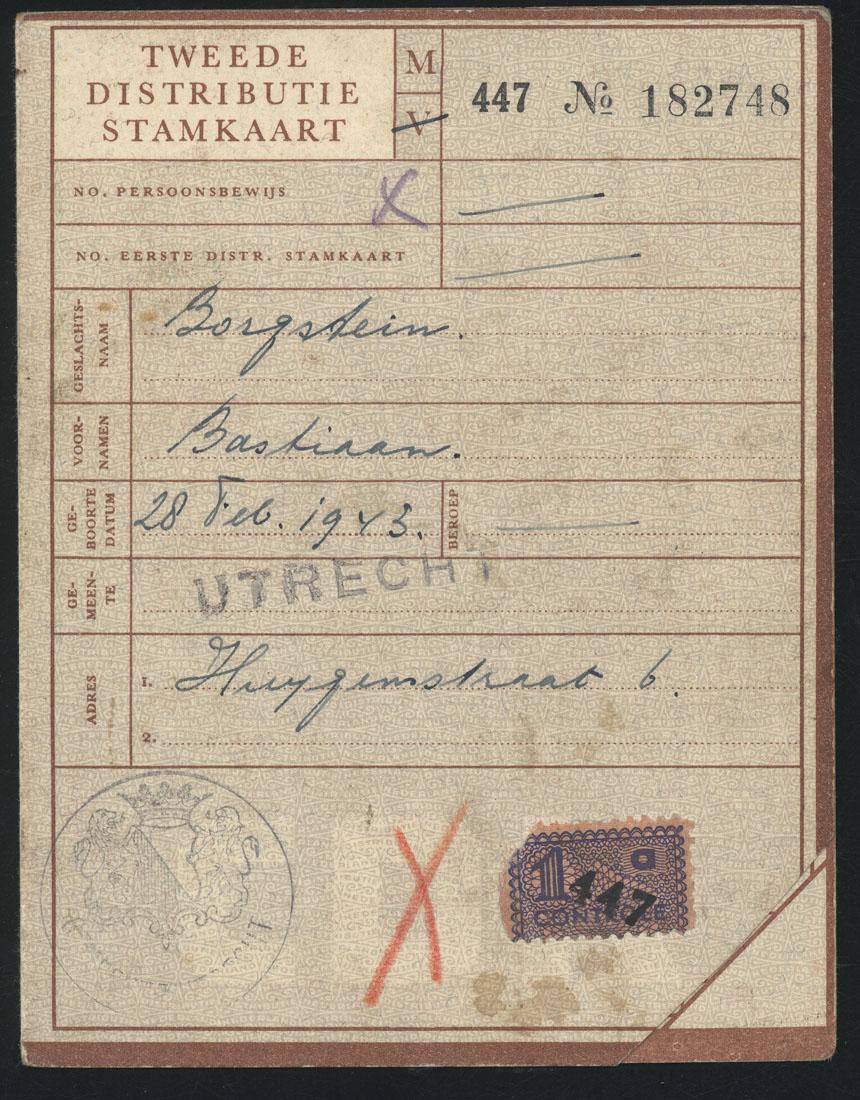 TWEEDE
DISTRIBUTIE
STAMKAART
M
V
447 № 182748
NO. PERSOONSBEWIJS
X
NO. EERSTE DISTR. STAMKAART
GESLACHTS-
NAAM
Borgstein.
VOOR-
NAMEN
Bastiaan.
GE-
BOORTE
DATUM
28 Feb. 1943.
BEROEP
GE-
MEEN-
TE
UTRECHT
ADRES
1. Huygenstraat 6.
2.
X
1
447
CONTROLE